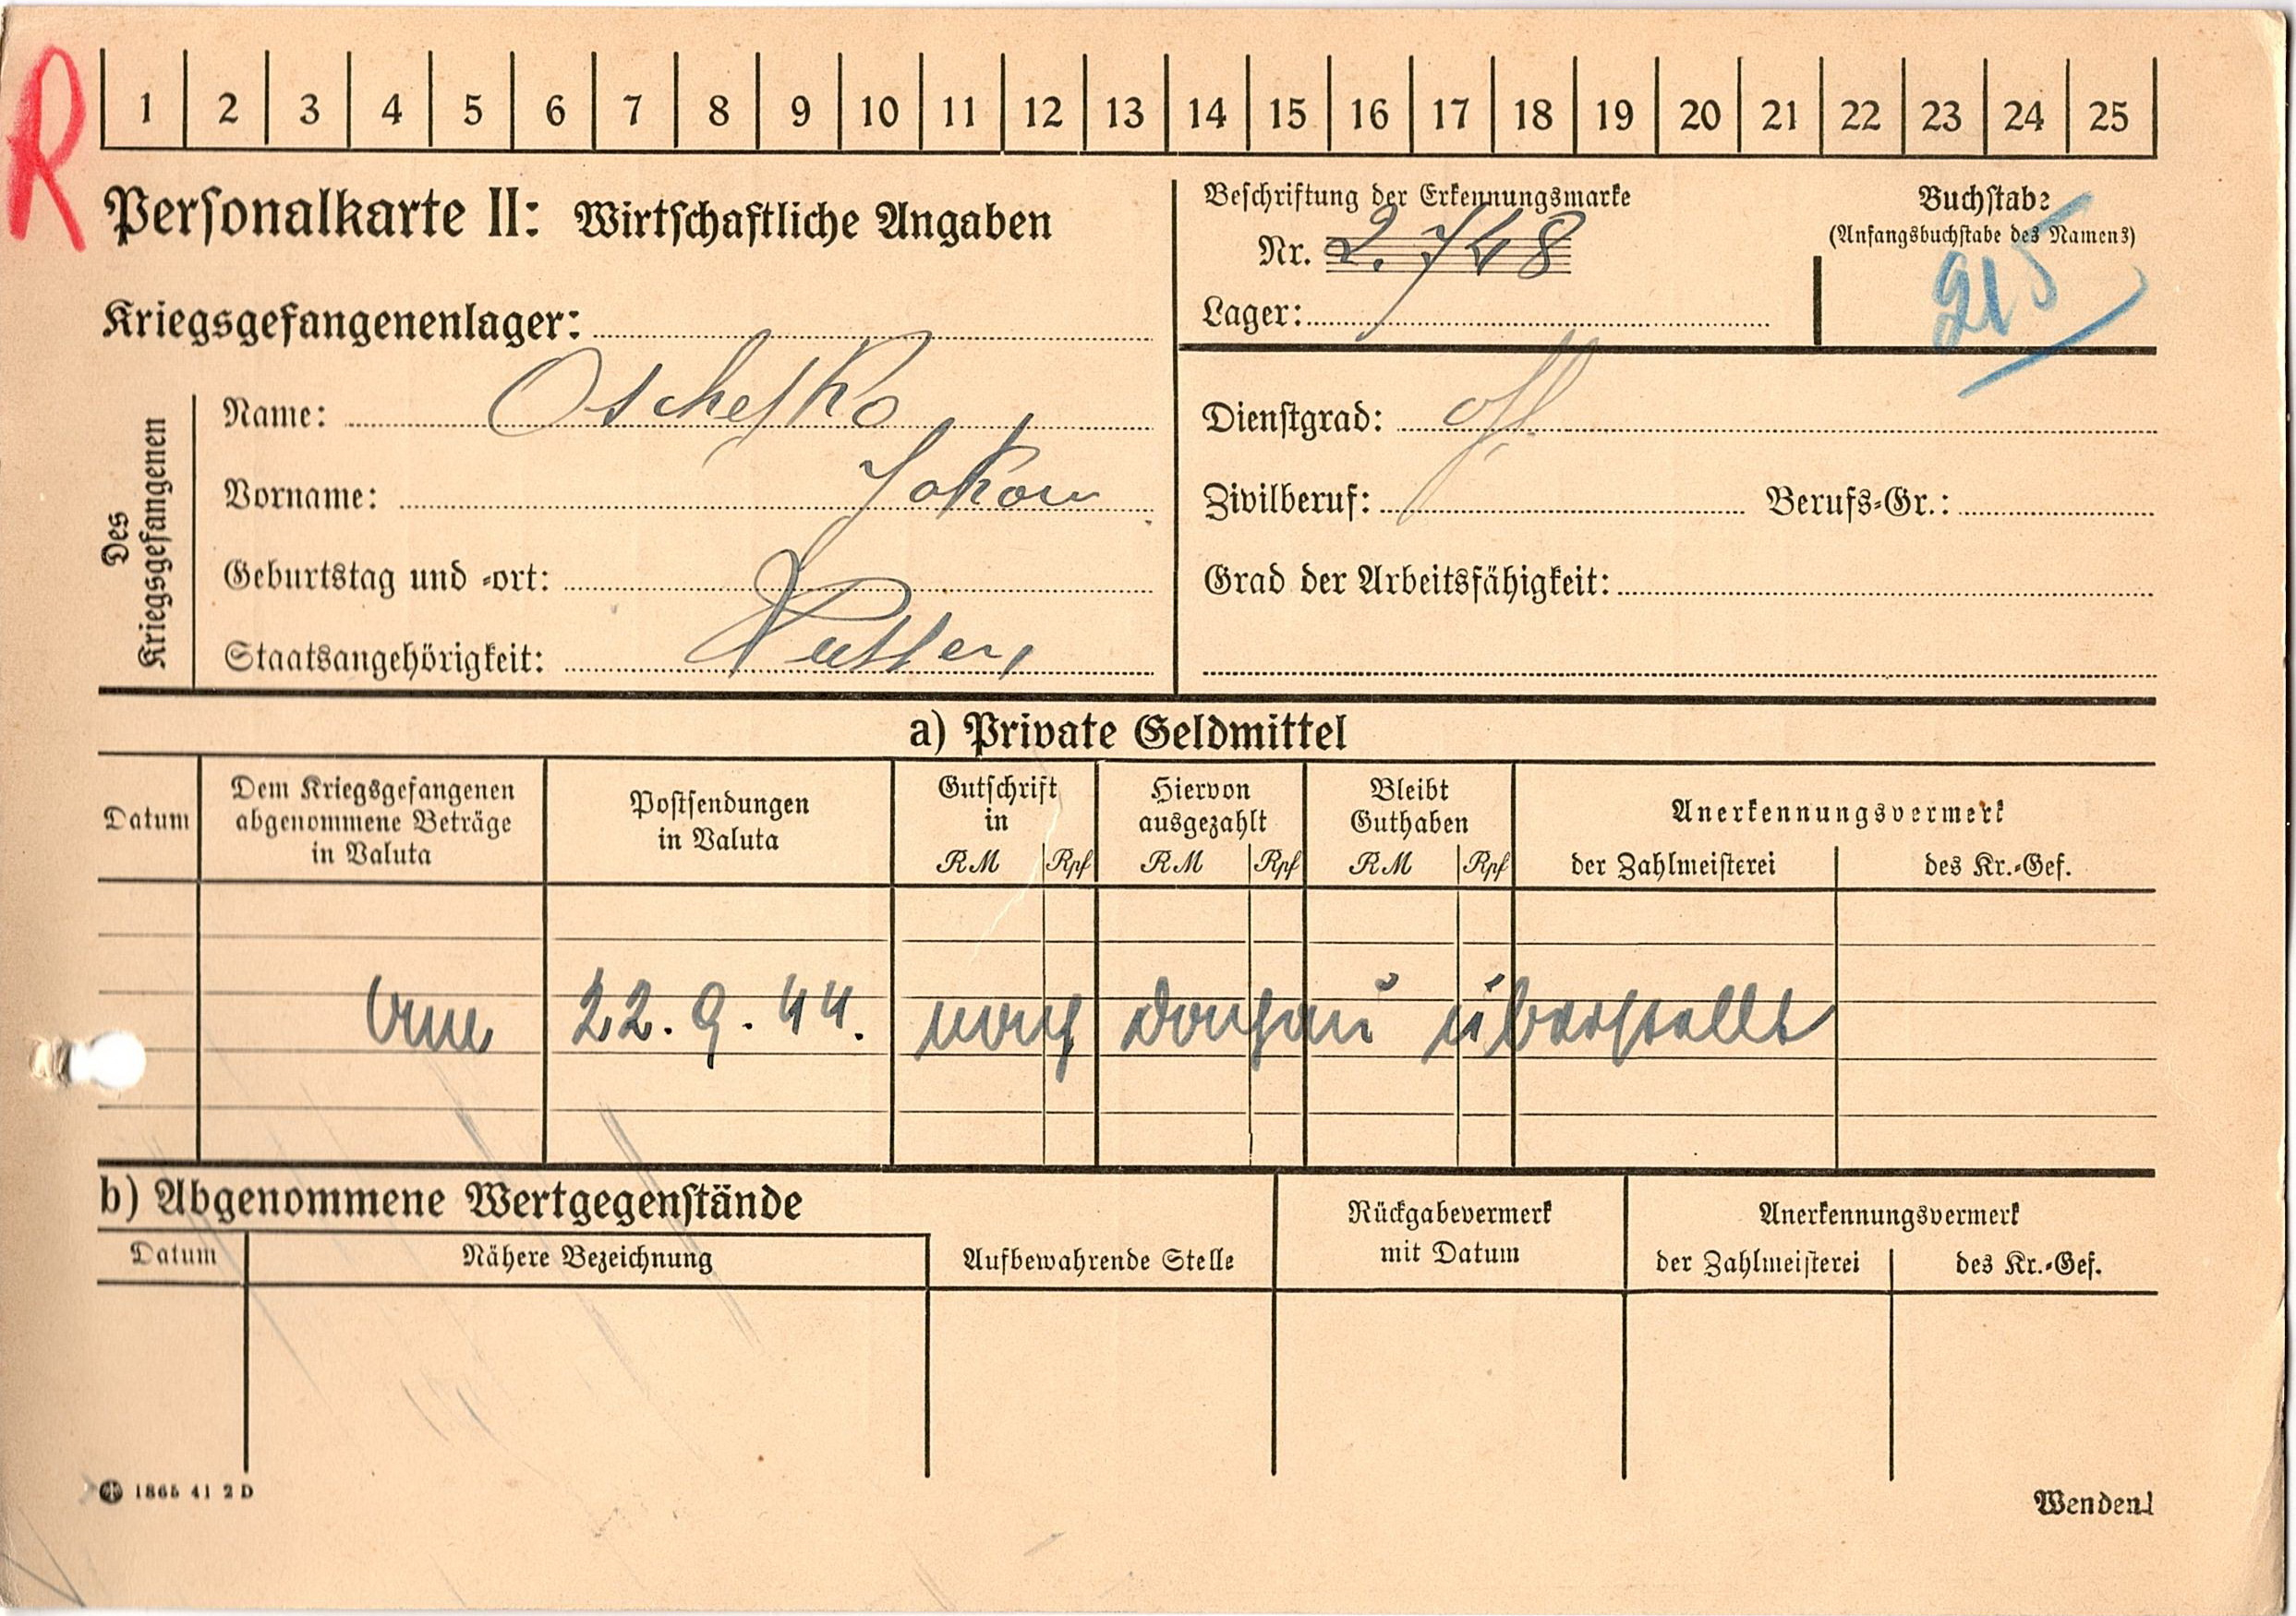 R
1 2 3 4 5 6 7 8 9 10 11 12 13 14 15 16 17 18 19 20 21 22 23 24 25
Personalkarte II: Wirtschaftliche Angaben
Beschriftung der Erkennungsmarke
Nr. 2.748
Lager:
Buchstabe
(Anfangsbuchstabe des Namens)
Kriegsgefangenenlager:
Des
Kriegsgefangenen
Name:
Vorname: Jakow
Geburtstag und -ort:
Staatsangehörigkeit:
Dienstgrad:
Zivilberuf: Berufs-Gr.:
Grad der Arbeitsfähigkeit:
a) Private Geldmittel
Datum
Dem Kriegsgefangenen
abgenommene Beträge
in Valuta
Postsendungen
in Valuta
Gutschrift
in
RM Rpf
Hiervon
ausgezahlt
RM Rpf
Bleibt
Guthaben
RM Rpf
Anerkennungsvermerk
der Zahlmeisterei des Kr.-Gef.
Am 22.9.44. nach Dachau überstellt
b) Abgenommene Wertgegenstände
Datum Nähere Bezeichnung
Aufbewahrende Stelle
Rückgabevermerk
mit Datum
Anerkennungsvermerk
der Zahlmeisterei des Kr.-Gef.
1865 41 2 D
Wenden!